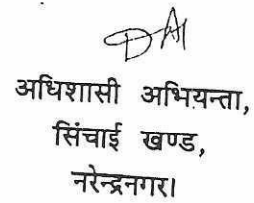 अधिशासी अभियन्ता,
सिंचाई खण्ड,
नरेन्द्रनगर।